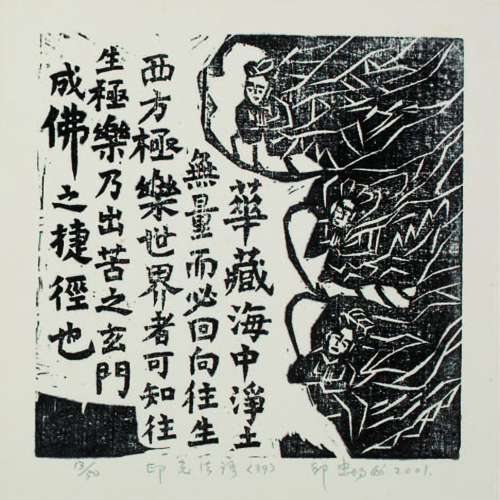 華藏海中淨土
無量而必回向往生
西方極樂世界者可知往
生極樂乃出苦之玄門
成佛之捷徑也
13/50 印光法語(39) 2001.